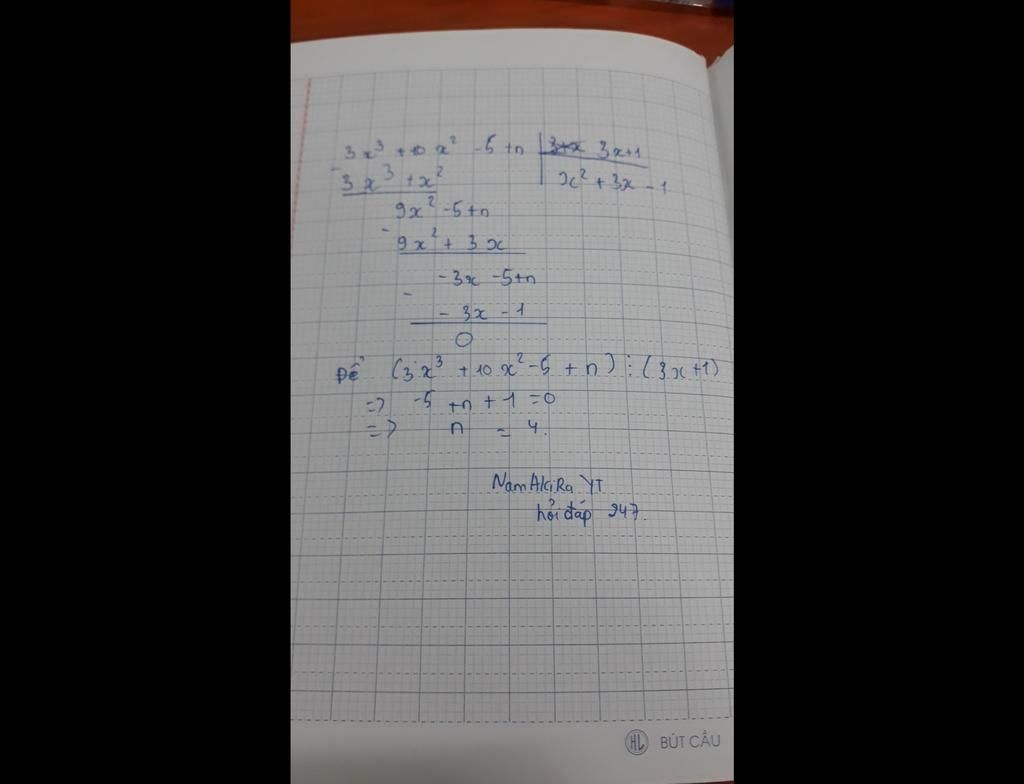 3x³ + 10x² - 5 + n | 3x+1
- 3x³ + x² | x² + 3x - 1
9x² - 5 + n
- 9x² + 3x
- 3x - 5 + n
- - 3x - 1
0
Để (3x³ + 10x² - 5 + n) ⋮ (3x + 1)
=> -5 + n + 1 = 0
=> n = 4.
NamAkiRa YT
hỏi đáp 247.
HL BÚT CẦU